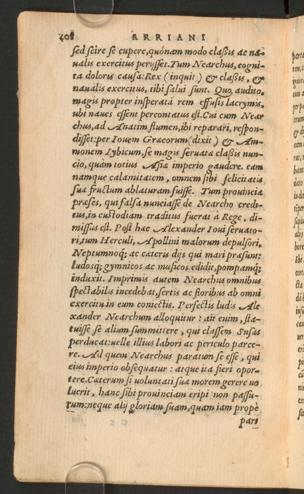 408 ARRIANI
sed scire se cupere, quónam modo claßis ac na-
ualis exercitus perijsset. Tum Nearchus, cogni-
ta doloris causa: Rex (inquit) & claßis, &
naualis exercitus, tibi salui sunt. Quo audito,
magis propter insperatā rem effusis lacrymis,
vbi naues essent percontatus est. Cui cum Near
chus, ad Anatim flumen, ibi reparari, respon-
disset: per Iouem Græcorum (dixit) & Am-
monem Lybicum, se magis seruata claßis nun-
cio, quàm totius Asiæ imperio gaudere. eam
namque calamitatem, omnem sibi felicitatis
suæ fructum ablaturam fuisse. Tum prouinciæ
præses, qui falsa nunciasse de Nearcho credi-
tus, in custodiam traditus fuerat à Rege, di-
missus est. Post hæc Alexander Ioui seruato-
ri, tum Herculi, Apollini malorum depulsori,
Neptumnoq́; ac cæteris dijs qui mari præsunt:
ludosq́; gymnicos ac musicos edidit, pompamq́;
induxit. Imprimis autem Nearchus omnibus
spectabilis incedebat, sertis ac floribus ab omni
exercitu in eum coniectis. Perfectis ludis Ale
xander Nearchum alloquitur: ait enim, sta-
tuisse se alium summittere, qui classem Susas
perducat: velle illius labori ac periculo parce-
re. Ad quem Nearchus paratum se esse, qui
eius imperio obsequatur: atque ita fieri opor-
tere. Cæterum si voluntati suæ morem gerere vo
luerit, hanc sibi prouinciam eripi non passu-
rum: neque alij gloriam suam, quam iam propè
pars